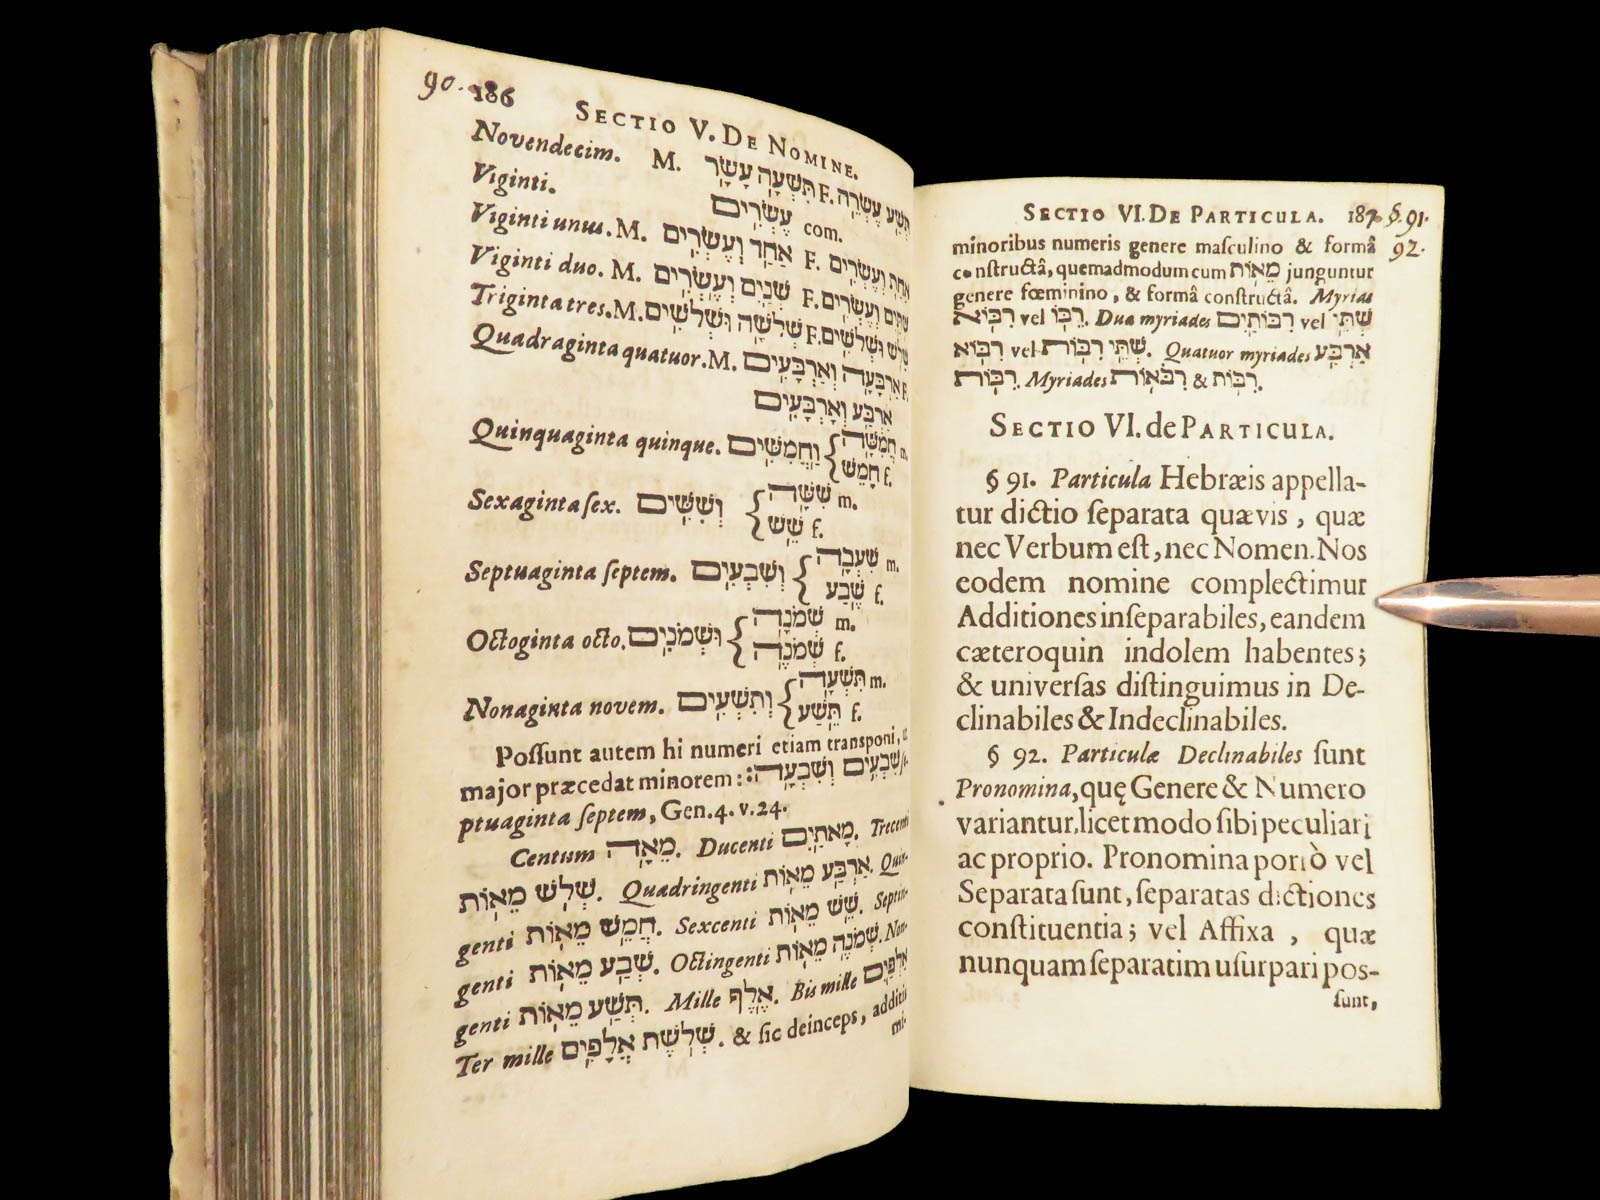 90. 186 SECTIO V. DE NOMINE.
Novendecim. M. תִּשְׁעָה עָשָׂר F. תְּשַׁע עֶשְׂרֵה
Viginti. עֶשְׂרִים com.
Viginti unus. M. אַחַד וְעֶשְׂרִים F. אַחַת וְעֶשְׂרִים
Viginti duo. M. שְׁנַיִם וְעֶשְׂרִים F. שְׁתַּיִם וְעֶשְׂרִים
Triginta tres. M. שְׁלֹשָׁה וּשְׁלֹשִׁים F. שָׁלֹשׁ וּשְׁלֹשִׁים
Quadraginta quatuor. M. אַרְבָּעָה וְאַרְבָּעִים F.
אַרְבַּע וְאַרְבָּעִים
Quinquaginta quinque. וַחֲמִשִּׁים { חֲמִשָּׁה m.
חָמֵשׁ f.
Sexaginta sex. וְשִׁשִּׁים { שִׁשָּׁה m.
שֵׁשׁ f.
Septuaginta septem. וְשִׁבְעִים { שִׁעְבָה m.
שֶׁבַע f.
Octoginta octo. וּשְׁמֹנִים { שְׁמֹנָה m.
שְׁמֹנֶה f.
Nonaginta novem. וְתִשְׁעִים { תִּשְׁעָה m.
תֵּשַׁע f.
Possunt autem hi numeri etiam transponi,
major præcedat minorem: שִׁבְעִים וְשִׁבְעָה se-
ptuaginta septem, Gen. 4. v. 24.
Centum מֵאָה. Ducenti מָאתַיִם. Trecenti
שְׁלֹשׁ מֵאוֹת. Quadringenti אַרְבַּע מֵאוֹת. Quin-
genti חֲמֵשׁ מֵאוֹת. Sexcenti שֵׁשׁ מֵאוֹת. Septin-
genti שְׁבַע מֵאוֹת. Octingenti שְׁמֹנֶה מֵאוֹת. Non-
genti תְּשַׁע מֵאוֹת. Mille אֶלֶף. Bis mille אַלְפַּיִם
Ter mille שְׁלֹשֶׁת אֲלָפִים. & sic deinceps, additis
mi-
SECTIO VI. DE PARTICULA. 187 §. 91.
92.
minoribus numeris genere masculino & formâ
constructâ, quemadmodum cum מֵאוֹת junguntur
genere fœminino, & formâ constructâ. Myrias
רִבּוֹא vel רִבּוֹ. Dua myriades רִבּוֹתַיִם vel שְׁתֵּי
רִבּוֹא vel שְׁתֵּי רִבּוֹת. Quatuor myriades אַרְבַּע
רִבּוֹת. Myriades רִבֹּאוֹת & רִבּוֹת.
SECTIO VI. de PARTICULA.
§ 91. Particula Hebræis appella-
tur dictio separata quævis, quæ
nec Verbum est, nec Nomen. Nos
eodem nomine complectimur
Additiones inseparabiles, eandem
cæteroquin indolem habentes;
& universas distinguimus in De-
clinabiles & Indeclinabiles.
§ 92. Particulæ Declinabiles sunt
Pronomina, quę Genere & Numero
variantur, licet modo sibi peculiari
ac proprio. Pronomina porrò vel
Separata sunt, separatas dictiones
constituentia; vel Affixa, quæ
nunquam separatim usurpari pos-
sunt,